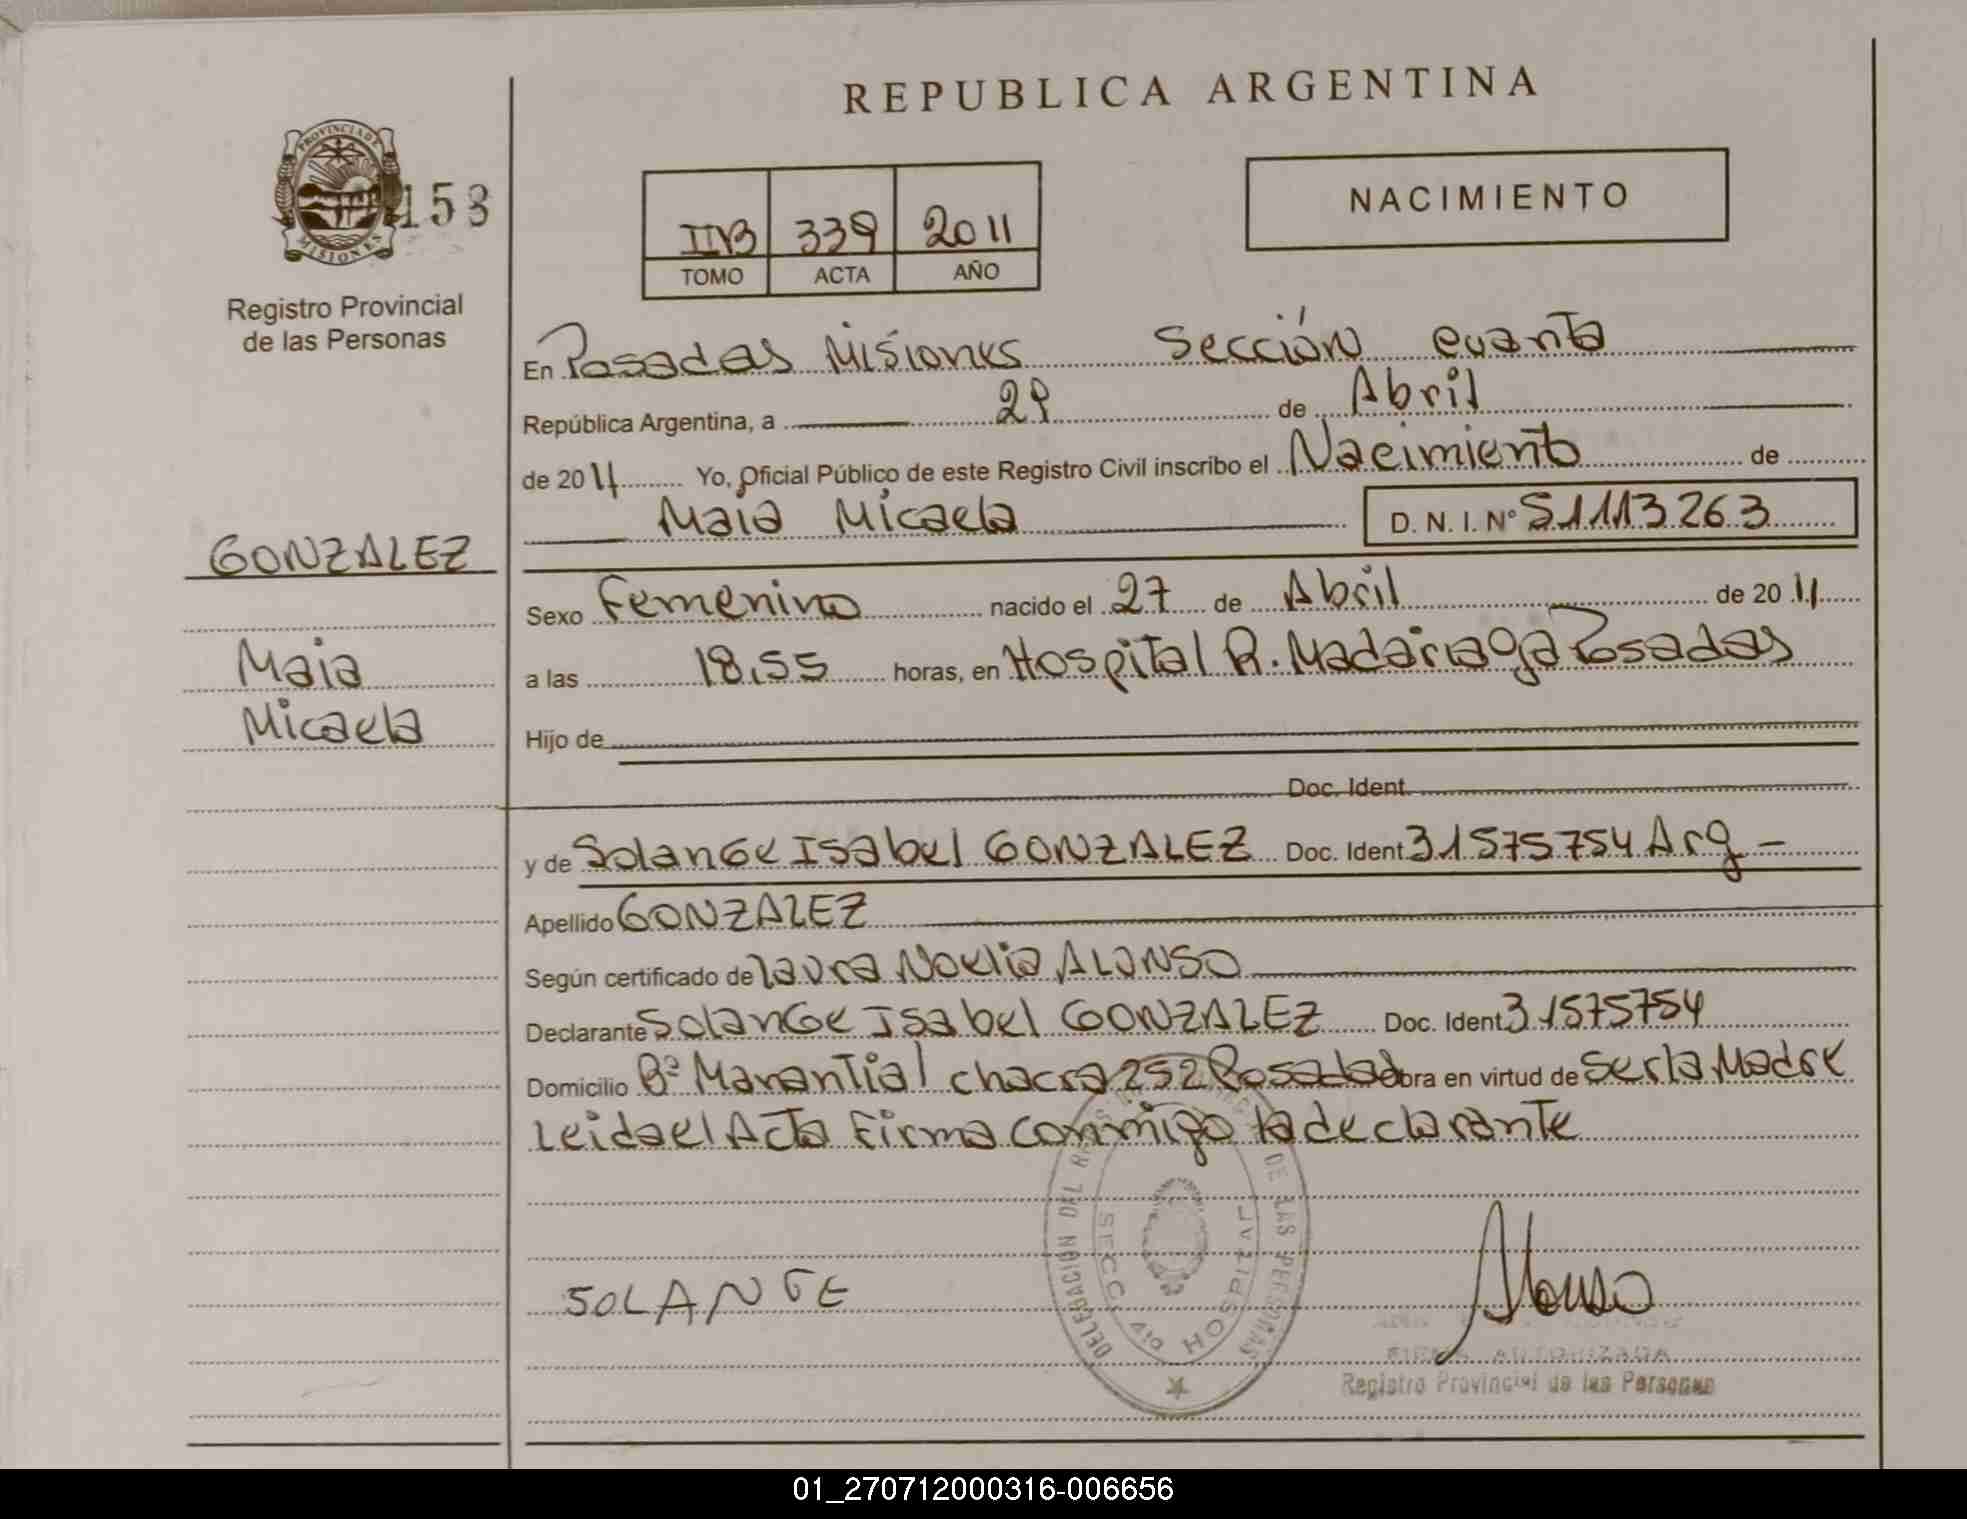 REPUBLICA ARGENTINA
PROVINCIA DE MISIONES
153
Registro Provincial
de las Personas
IIB 339 2011
TOMO ACTA AÑO
NACIMIENTO
En Posadas Misiones Sección cuarta
República Argentina, a 29 de Abril
de 2011 Yo, Oficial Público de este Registro Civil inscribo el Nacimiento de
Maia Micaela D. N. I. N° 51113263
GONZALEZ
Maia
Micaela
Sexo Femenino nacido el 27 de Abril de 2011
a las 18,55 horas, en Hospital R. Madariaga Posadas
Hijo de
Doc. Ident.
y de Solange Isabel GONZALEZ Doc. Ident 31575754 Arg -
Apellido GONZALEZ
Según certificado de Laura Noelia ALONSO
Declarante Solange Isabel GONZALEZ Doc. Ident 31575754
Domicilio Bº Manantial chacra 252 Posadas obra en virtud de ser la Madre
Leida el Acta Firma conmigo la declarante
SOLANGE
Alonso
DELEGACION DEL DE LAS PERSONAS
SECC. 4to HOSPITAL
Registro Provincial de las Personas
01_270712000316-006656